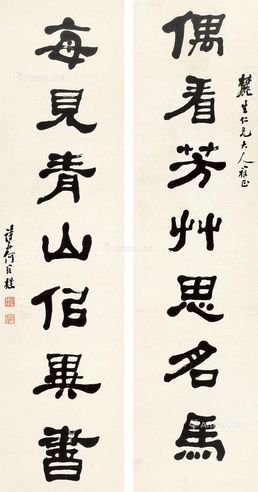 麓生仁兄大人雅正
偶看芳艸思名馬
每見青山佀異書
詩孫何維樸